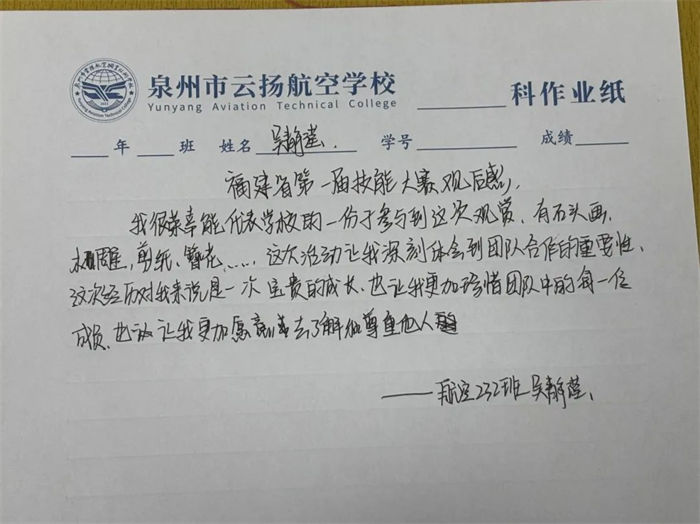 泉州市云扬航空学校
Yunyang Aviation Technical College
科作业纸
年 班 姓名 吴静莹. 学号 成绩
福建省第一届技能大赛观后感,
我很荣幸能代表学校的一份子参与到这次观赏,有石头画,
木雕,剪纸、簪花……,这次活动让我深刻体会到团队合作的重要性、
这次经历对我来说是一次宝贵的成长、也让我更加珍惜团队中的每一位
成员、也 让我更加愿意 去了解和尊重他人
——航空232班吴静莹、